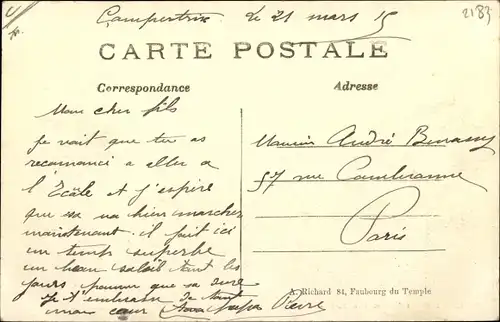 le 21 mars 15
2183
CARTE POSTALE
Correspondance
Adresse
Mon cher fils
Je voit que tu as
recomancé a aller a
l'Ecole et j'espère
que sa va bien marcher
maintenant. il fait ici
un temps superbe
un beau soleil tout les
jours pourvu que sa dure
Je t'embrasse de tout
mon cœur papa Pierre
Monsieur André
57 rue Cambronne
Paris
A. Richard 84, Faubourg du Temple